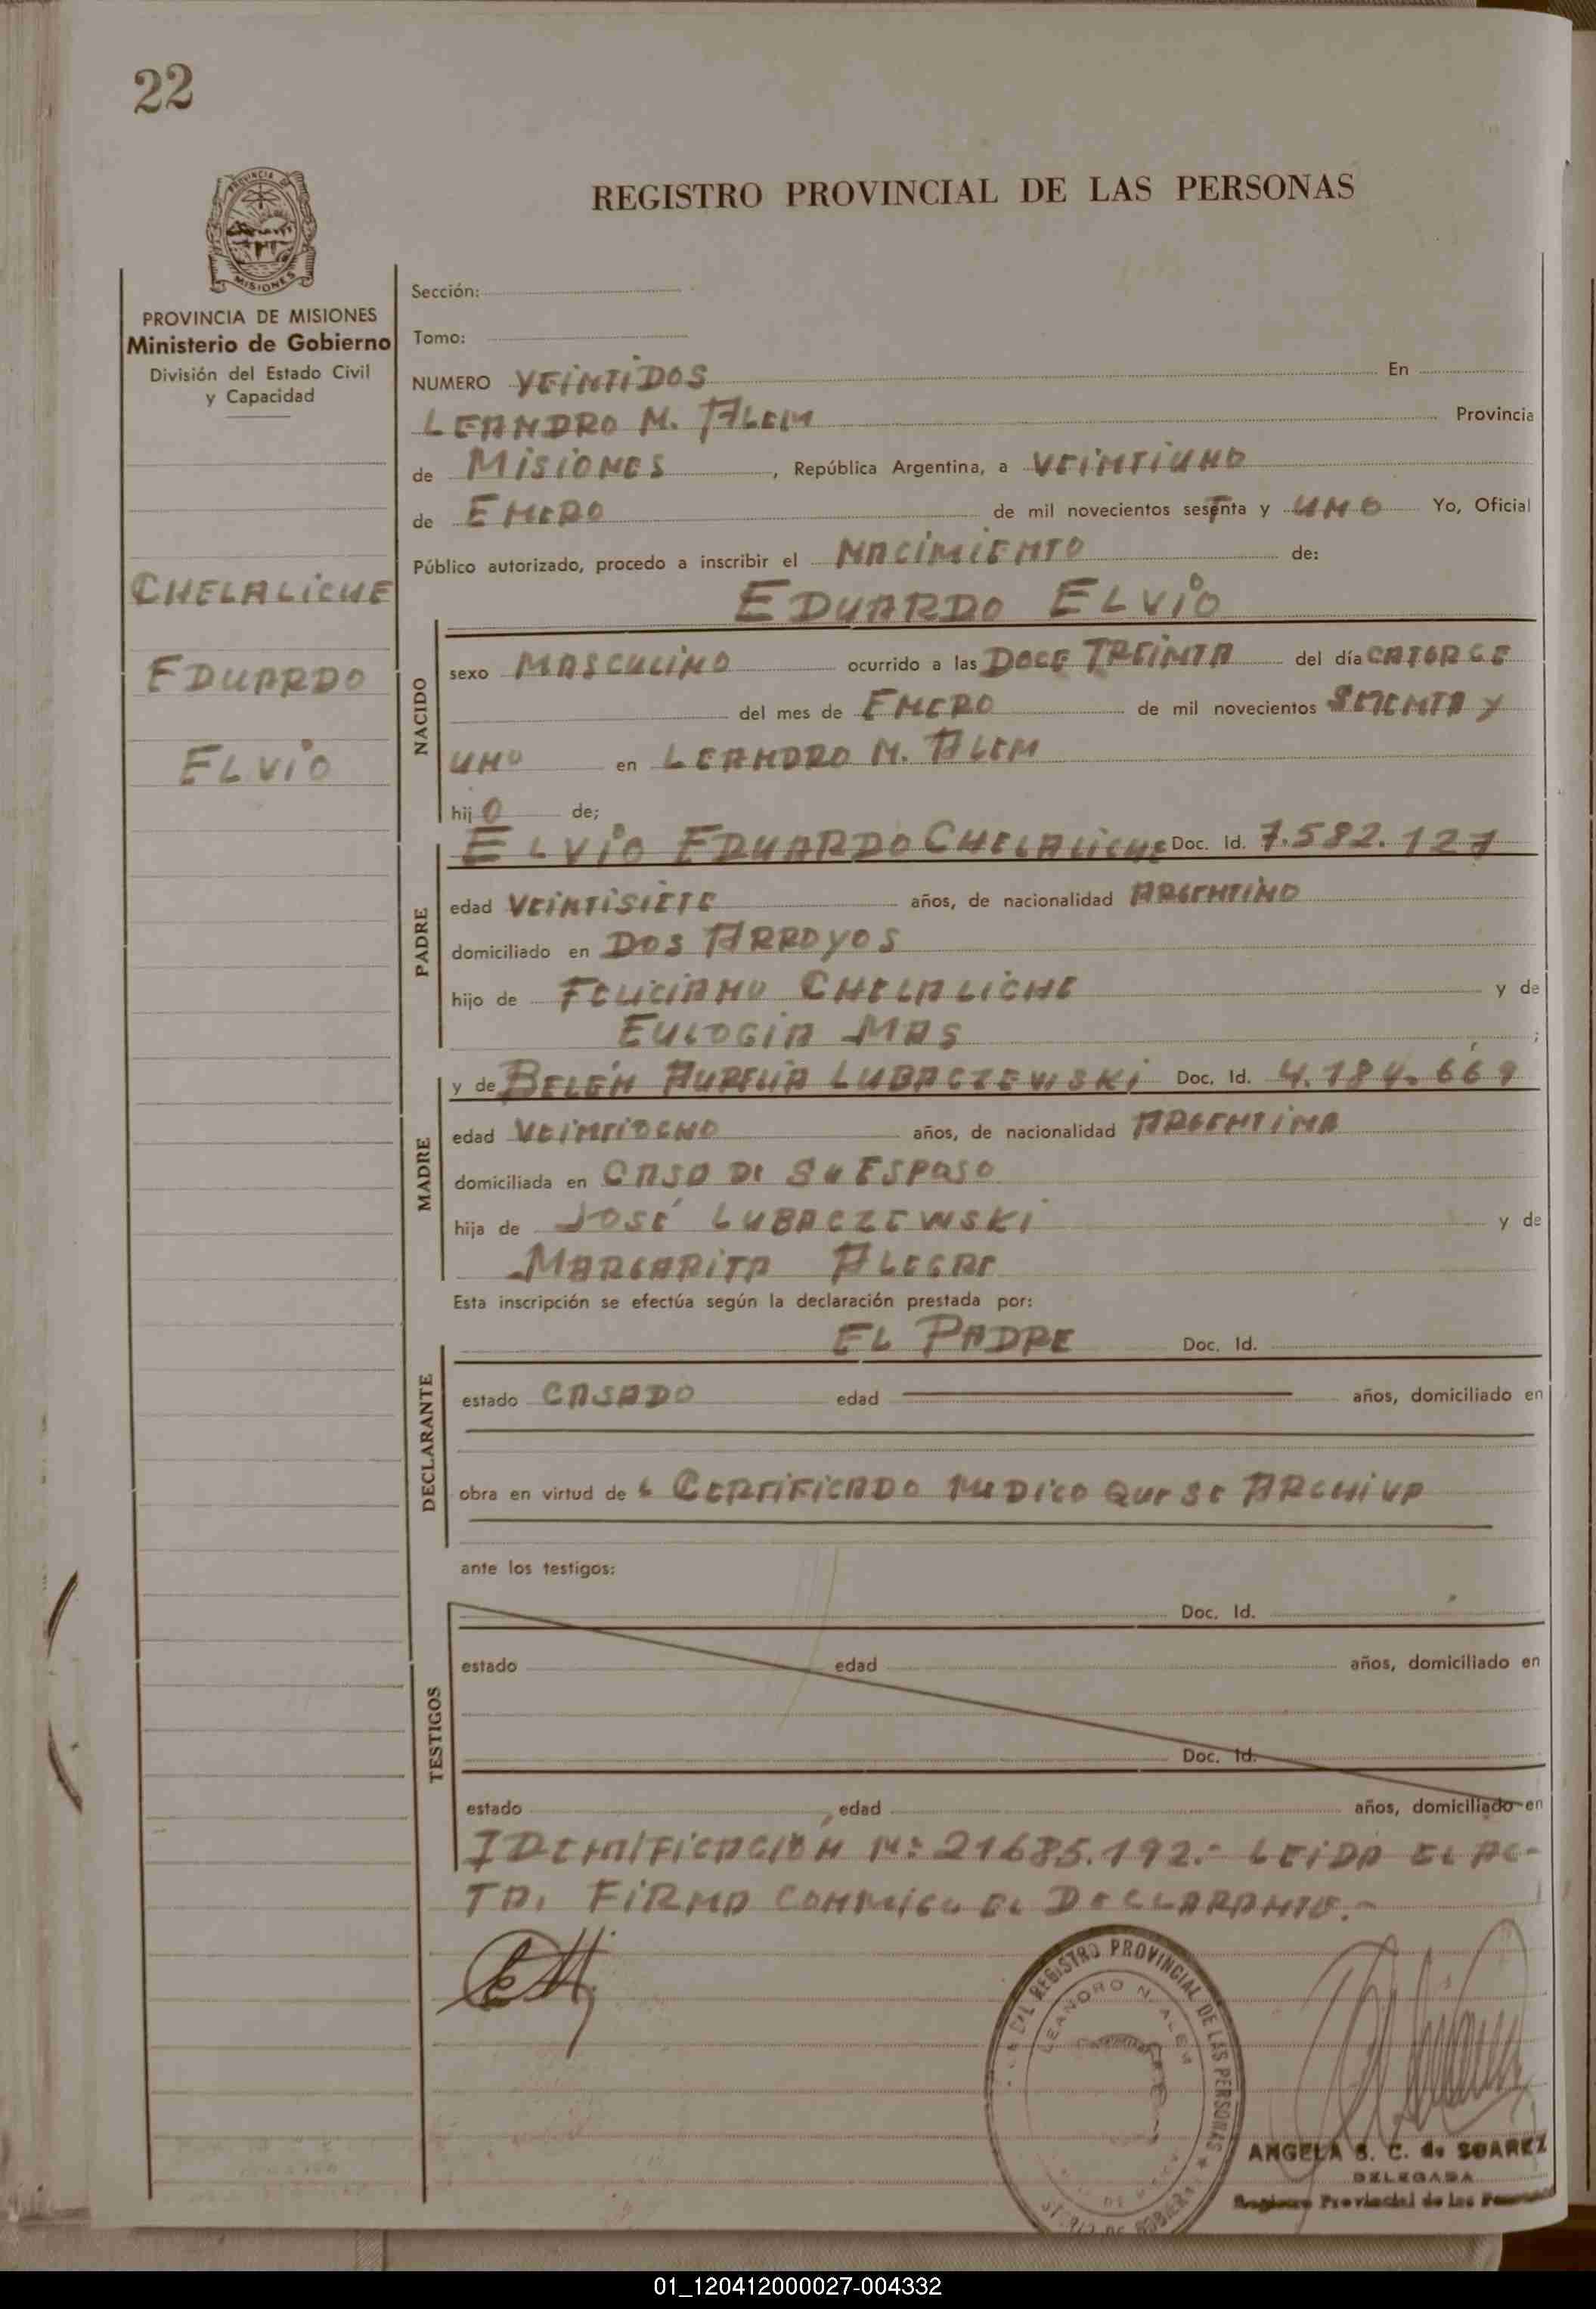 22
REGISTRO PROVINCIAL DE LAS PERSONAS
PROVINCIA DE
MISIONES
PROVINCIA DE MISIONES
Ministerio de Gobierno
División del Estado Civil
y Capacidad
CHELALICHE
EDUARDO
ELVIO
Sección:
Tomo:
NUMERO VEINTIDOS En
LEANDRO N. ALEM Provincia
de MISIONES, República Argentina, a VEINTIUNO
de ENERO de mil novecientos sesenta y UNO Yo, Oficial
Público autorizado, procedo a inscribir el NACIMIENTO de:
EDUARDO ELVIO
NACIDO
sexo MASCULINO ocurrido a las DOCE TREINTA del día CATORCE
del mes de ENERO de mil novecientos Y
UNO en LEANDRO N. ALEM
hijO de;
PADRE
ELVIO EDUARDO CHELALICHE Doc. Id. 7.582.127
edad VEINTISIETE años, de nacionalidad ARGENTINO
domiciliado en DOS ARROYOS
hijo de FELICIANO CHELALICHE y de
EULOGIA MAS ;
MADRE
y de BELEN AURELIA LUBACZEWSKI Doc. Id. 4.184.669
edad VEINTIOCHO años, de nacionalidad ARGENTINA
domiciliada en CASA DE SU ESPOSO
hija de JOSÉ LUBACZEWSKI y de
MARGARITA ALEGRE
Esta inscripción se efectúa según la declaración prestada por:
DECLARANTE
EL PADRE Doc. Id.
estado CASADO edad años, domiciliado en
obra en virtud de CERTIFICADO MEDICO QUE SE ARCHIVA
ante los testigos:
TESTIGOS
Doc. Id.
estado edad años, domiciliado en
Doc. Id.
estado edad años, domiciliado en
IDENTIFICACIÓN N: 21685.192.- LEIDA EL AC-
TA, FIRMA CONMIGO EL DECLARANTE.-
REGISTRO PROVINCIAL DE LAS PERSONAS
LEANDRO N. ALEM
ANGELA S. C. de SUAREZ
DELEGADA
Registro Provincial de las Personas
01_120412000027-004332